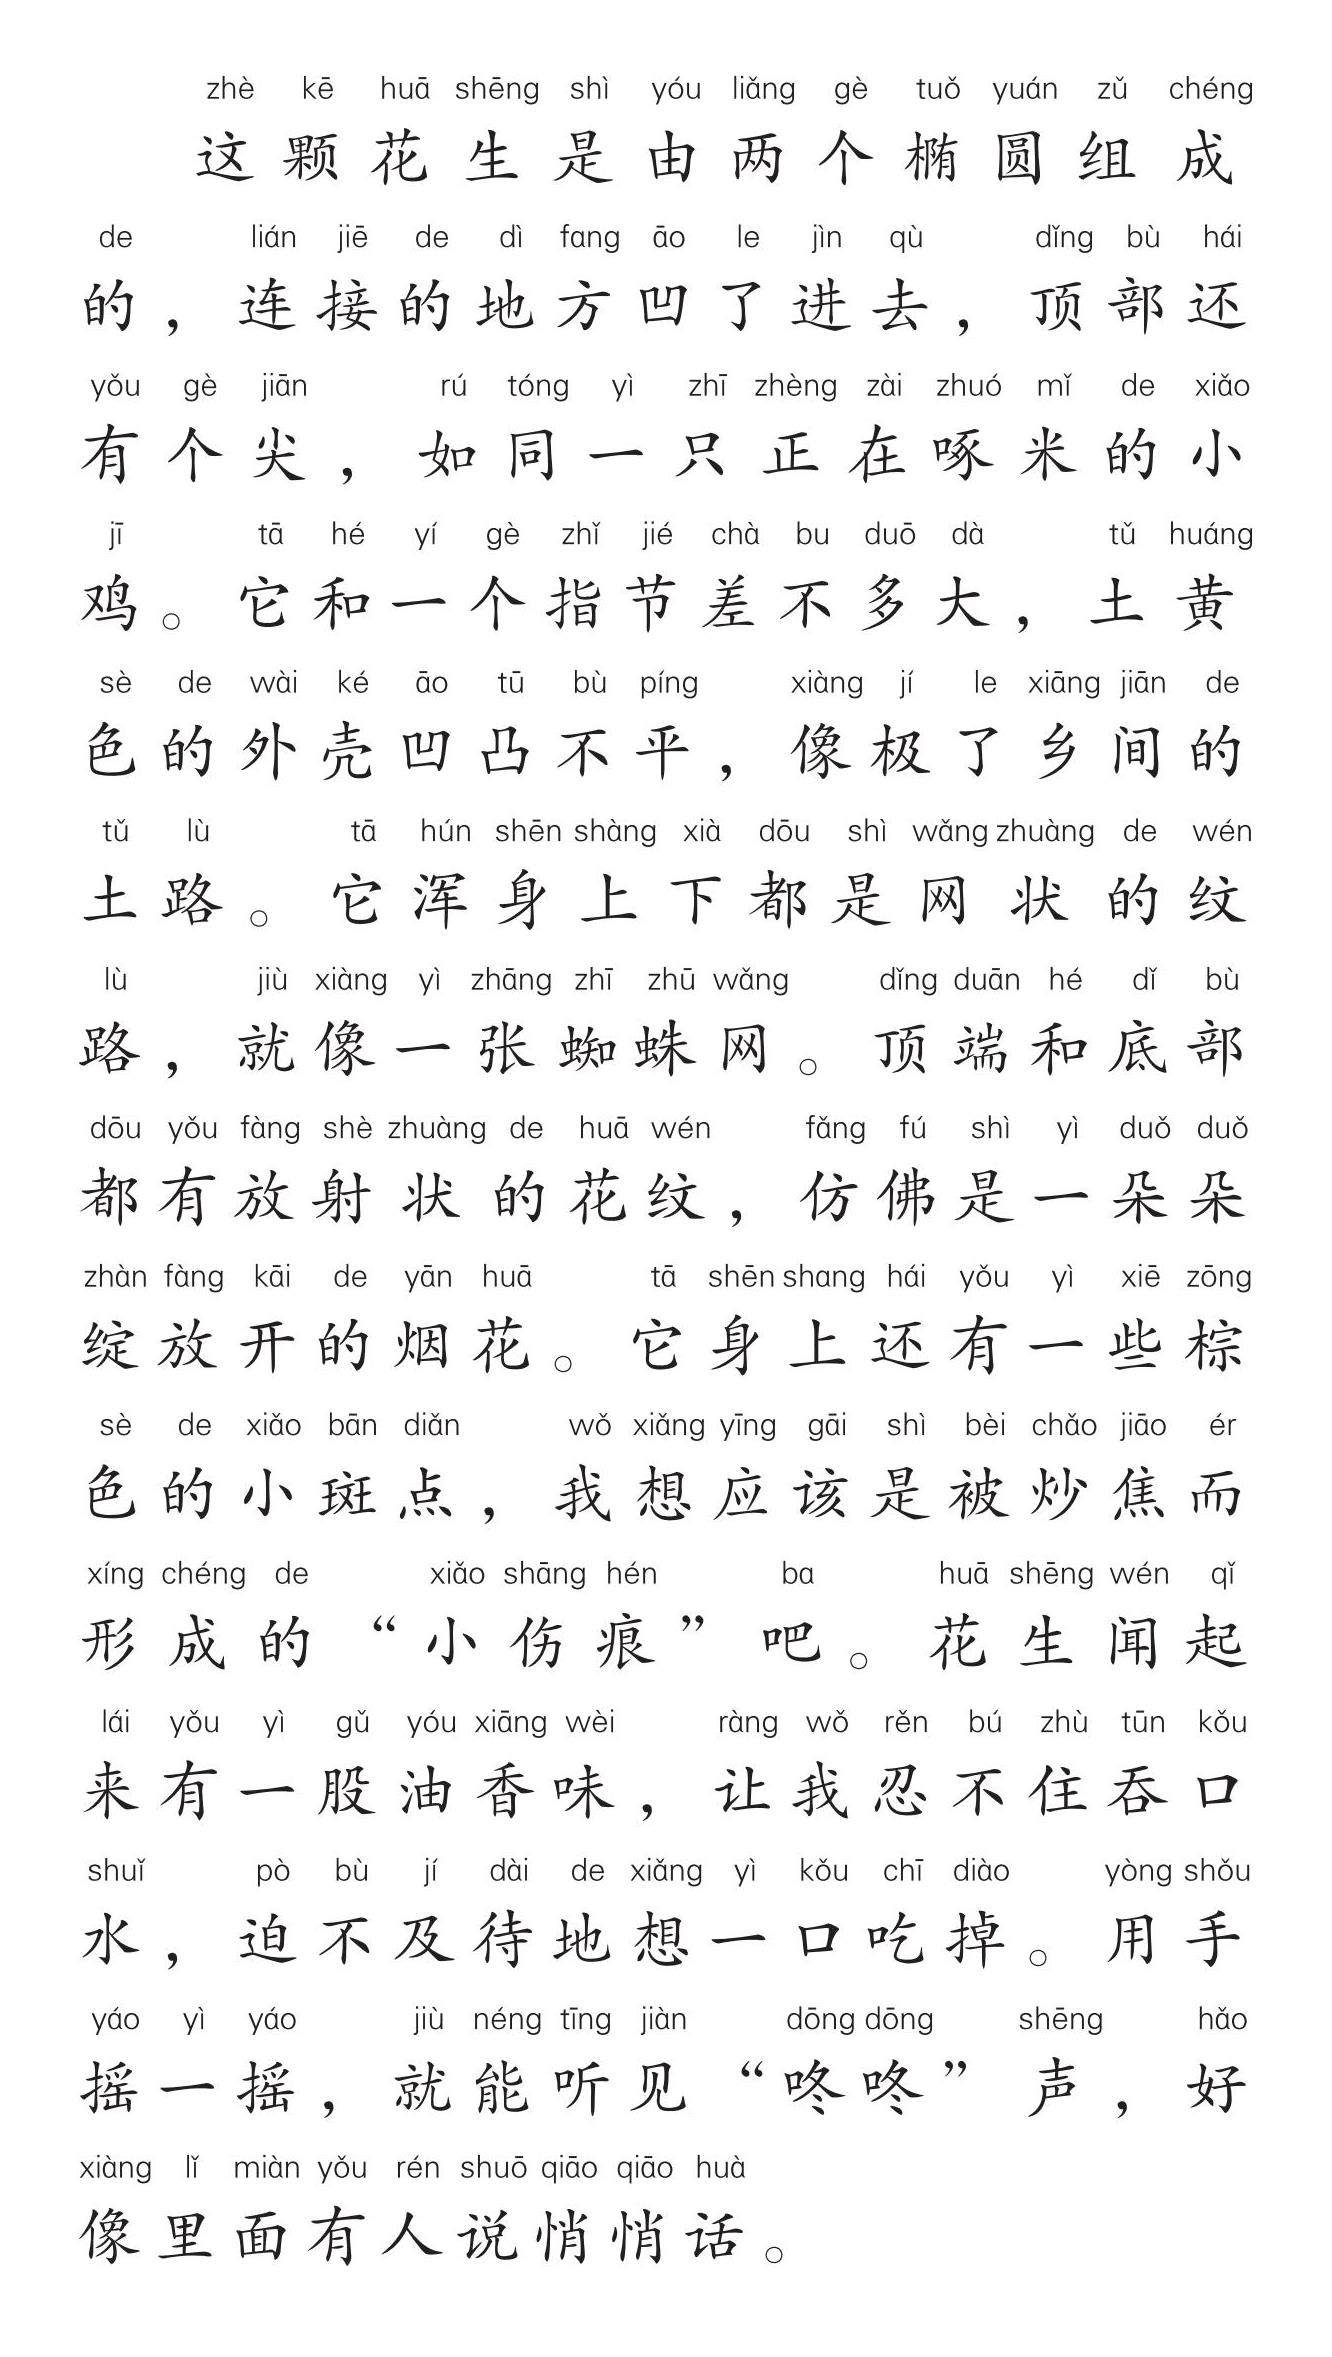 zhè kē huā shēng shì yóu liǎng gè tuǒ yuán zǔ chéng
这颗花生是由两个椭圆组成
de lián jiē de dì fang āo le jìn qù dǐng bù hái
的，连接的地方凹了进去，顶部还
yǒu gè jiān rú tóng yì zhī zhèng zài zhuó mǐ de xiǎo
有个尖，如同一只正在啄米的小
jī tā hé yí gè zhǐ jié chà bu duō dà tǔ huáng
鸡。它和一个指节差不多大，土黄
sè de wài ké āo tū bù píng xiàng jí le xiāng jiān de
色的外壳凹凸不平，像极了乡间的
tǔ lù tā hún shēn shàng xià dōu shì wǎng zhuàng de wén
土路。它浑身上下都是网状的纹
lù jiù xiàng yì zhāng zhī zhū wǎng dǐng duān hé dǐ bù
路，就像一张蜘蛛网。顶端和底部
dōu yǒu fàng shè zhuàng de huā wén fǎng fú shì yì duǒ duǒ
都有放射状的花纹，仿佛是一朵朵
zhàn fàng kāi de yān huā tā shēn shang hái yǒu yì xiē zōng
绽放开的烟花。它身上还有一些棕
sè de xiǎo bān diǎn wǒ xiǎng yīng gāi shì bèi chǎo jiāo ér
色的小斑点，我想应该是被炒焦而
xíng chéng de xiǎo shāng hén ba huā shēng wén qǐ
形成的“小伤痕”吧。花生闻起
lái yǒu yì gǔ yóu xiāng wèi ràng wǒ rěn bú zhù tūn kǒu
来有一股油香味，让我忍不住吞口
shuǐ pò bù jí dài de xiǎng yì kǒu chī diào yòng shǒu
水，迫不及待地想一口吃掉。用手
yáo yì yáo jiù néng tīng jiàn dōng dōng shēng hǎo
摇一摇，就能听见“咚咚”声，好
xiàng lǐ miàn yǒu rén shuō qiāo qiāo huà
像里面有人说悄悄话。